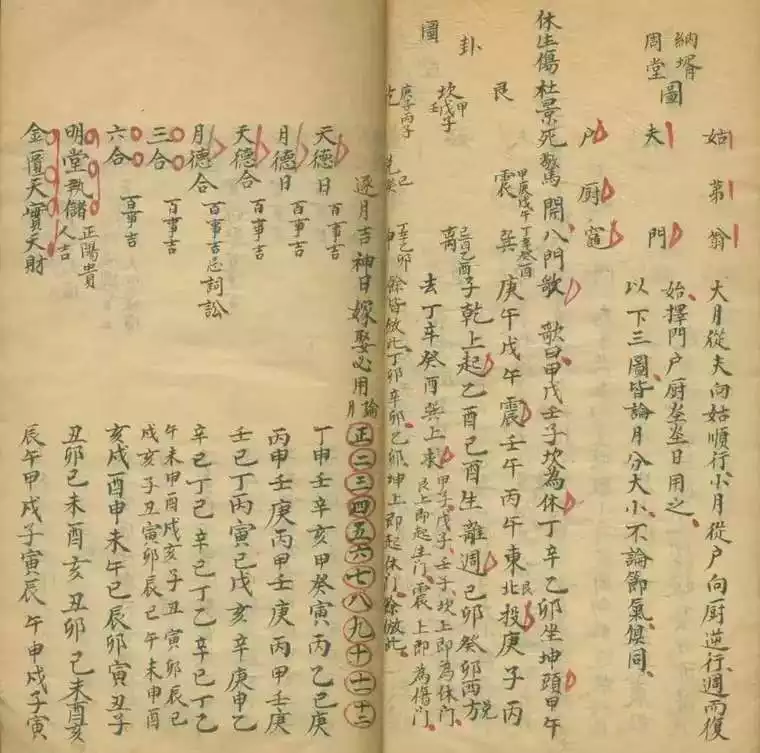 納壻周堂圖
姑 弟 翁
夫 門
户 厨 竈
大月從夫向姑順行小月從户向厨逆行週而復
始擇門户厨坐坐日用之
以下三圖皆論月分大小不論節氣俱同
休生傷杜景死驚開八門歌 歌曰甲戊壬子坎為休丁辛乙卯坐坤頭甲午
庚午戊午震壬午丙午東北艮投庚子丙
子乾上起乙酉己酉生離週己卯癸卯西方兑
去丁辛癸酉巽上求甲子戊子壬子坎上即為休門
艮上即起生門震上即為傷門
餘皆倣此丁卯辛卯乙卯坤上即起休門餘倣此
卦圖
艮
震 甲庚戊午
巽 丁辛癸酉
坎 甲戊子壬
離 己酉乙酉
乾 庚子丙子
兑 己癸
坤 丁辛乙卯
逐月吉神日嫁娶必用論月 正二三四五六七八九十十一十二
天德日 百事吉 丁申壬辛亥甲癸寅丙乙巳庚
月德日 百事吉 丙甲壬庚丙甲壬庚丙甲壬庚
天德合 百事吉 壬巳丁丙寅己戊亥辛庚申乙
月德合 百事吉忌詞訟 辛己丁乙辛己丁乙辛己丁乙
三合 百事吉 午未申酉戌亥子丑寅卯辰巳
戌亥子丑寅卯辰巳午未申酉
六合 百事吉 亥戌酉申未午巳辰卯寅丑子
明堂執儲 正陽貴人吉 丑卯巳未酉亥丑卯巳未酉亥
金匱天寶天財 辰午申戌子寅辰午申戌子寅